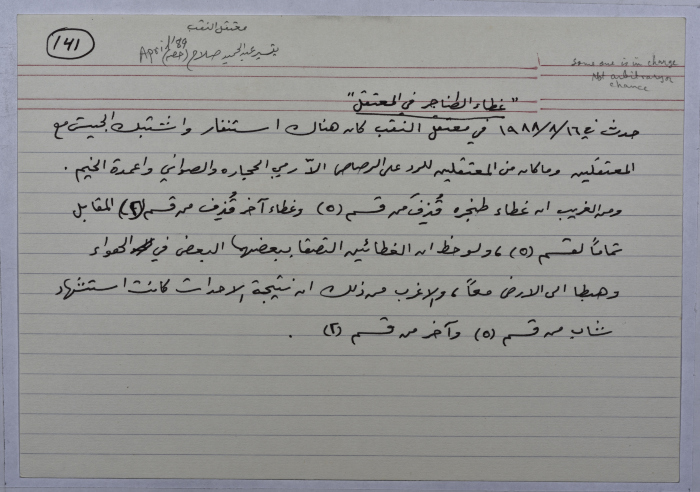 141
معتقل النقب
تيسير عبد الحميد صلاح (حمزة) April/89
some one is in charge
Not arbitrary or
chance
"غطاء الطناجر في المعتقل"
حدث في ١٩٨٨/٨/١٦ في معتقل النقب كان هناك استنفار واشتبك الجيش مع
المعتقلين وما كان من المعتقلين للرد على الرصاص الاّ رمي الحجاره والصواني واعمدة الخيم .
ومن الغريب ان غطاء طنجره قُذِفَ من قسم (٥) وغطاء آخر قُذِف من قسم (٢) المقابل
تماماً لقسم (٥) ، ولوحظ ان الغطائين التصقا ببعضهما البعض في الهواء
وهبطا الى الارض معاً ، والاغرب من ذلك ان نتيجة الاحداث كانت استشهاد
شاب من قسم (٥) وآخر من قسم (٢) .